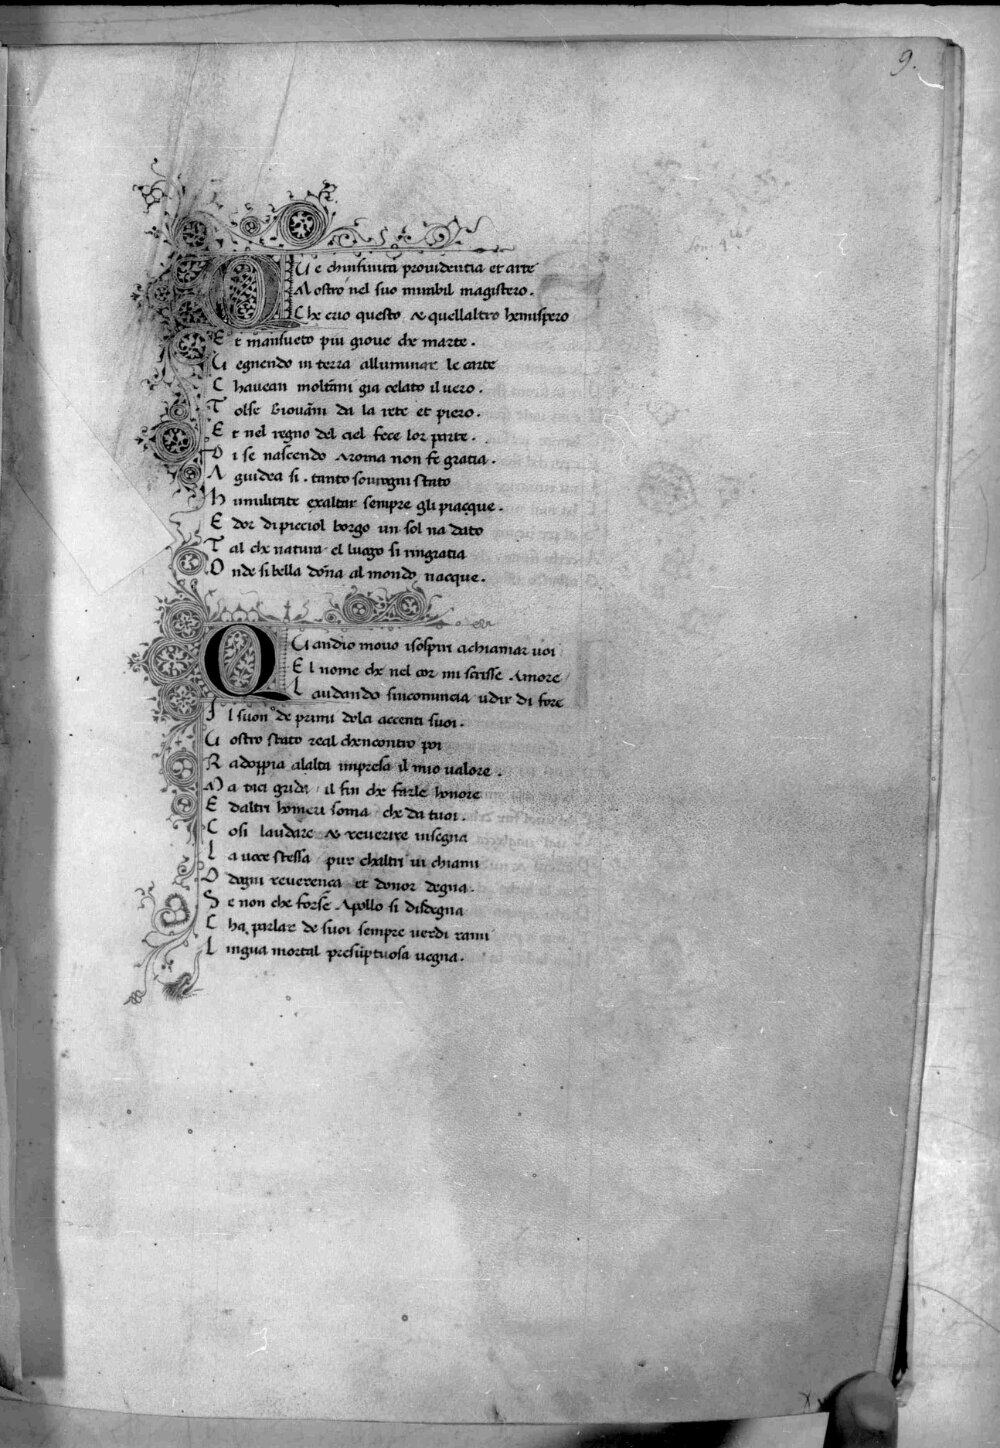 9.
QUe chinfinita prouidentia et arte
Mostro nel suo mirabil magistero.
Che crio questo & quellaltro hemispero
Et mansueto piu gioue che marte.
Uegnendo in terra alluminar le carte
Chauean moltãni gia celato il uero.
Tolse Giouãni da la rete et piero.
Et nel regno del ciel fece lor parte.
Di se nascendo aroma non fe gratia.
A giudea si. tanto sourogni stato
Humilitate exaltar sempre gli piacque.
Edor di picciol borgo un sol na dato
Tal che natura el luogo si ringratia
Onde si bella dõna al mondo nacque.
QUandio mouo isospiri a chiamar uoi
El nome che nel cor mi scrisse Amore
Laudando sincomincia udir di fore
Il suon de primi dolci accenti suoi.
Uostro stato real chencontro poi
Radoppia alalta impresa il mio ualore.
Ma taci grida il fin che farle honore
E daltri homeri soma che da tuoi.
Cosi laudare & reuerire insegna
La uoce stessa pur chaltri ui chiami
O dogni reuerenza et donor degna.
Se non che forse Apollo si disdegna
Cha parlar de suoi sempre uerdi rami
Lingua mortal presũptuosa uegna.